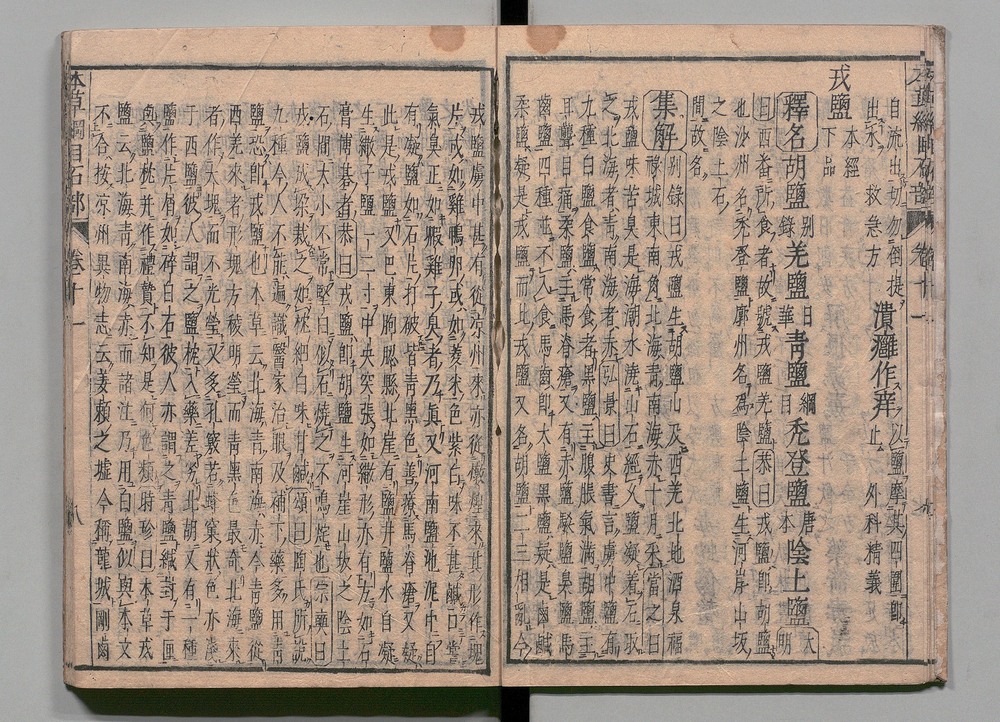 自流出切勿倒提 潰癰作痒 以鹽摩其四圍即
出水 救急方 止 外科精義
戎鹽 本經
下品
釋名 胡鹽 別錄 羌鹽 日華 青鹽 綱目 禿登鹽 唐本 陰土鹽 大明
恭曰戎鹽即胡鹽
也沙州名禿登鹽廓州名為陰土鹽生河岸山坂
之陰土石
間故名
集解 別錄曰戎鹽生胡鹽山及西羌北地酒泉福
祿城東南角北海青南海赤十月采當之曰
戎鹽味苦臭是海潮水澆山石經久鹽凝着石取
之北海者青南海者赤弘景曰史書言虜中鹽有
九種白鹽食鹽常食者黑鹽主腹脹氣滿胡鹽主
耳聾目痛柔鹽主馬脊瘡又有赤鹽駮鹽臭鹽馬
齒鹽四種並不入食馬齒即大鹽黑鹽疑是鹵鹹
柔鹽疑是戎鹽而此戎鹽又名胡鹽二三相亂今
戎鹽虜中甚有從涼州來亦從燉煌來其形作塊
片或如雞鴨卵或如菱米色紫白味不甚鹹口嘗
氣臭正如毈雞子臭者乃真又河南鹽池泥中自
有凝鹽如石片打破皆青黑色善療馬脊瘡又疑
此是又巴東朐䏰縣北崖有鹽井鹽水自凝
生繖子鹽一二寸中央突張如繖形亦有方如石
膏博碁者恭曰戎鹽即胡鹽生河崖山坂之陰土
石間大小不常堅白似石燒之不鳴炨也宗奭曰
九種今人不能遍識醫家治眼及補下藥多用青
鹽恐即戎鹽也本草云北海青南海赤今青鹽從
西羌來者形塊方稜明瑩而青黑色最奇北海來
者作大塊而不光瑩又多孔竅若蜂窠狀色亦淺
于西鹽彼人謂之鹽枕入藥差劣北胡又有一種
鹽作片屑如碎白石彼人亦謂之青鹽緘封于匣
與鹽枕并作禮贄不知是何色類時珍曰本草戎
鹽云北海青南海赤而諸注乃用白鹽似與本文
不合按涼州異物志云姜賴之墟今稱龍城剛鹵
本草綱目石部 卷十一 八